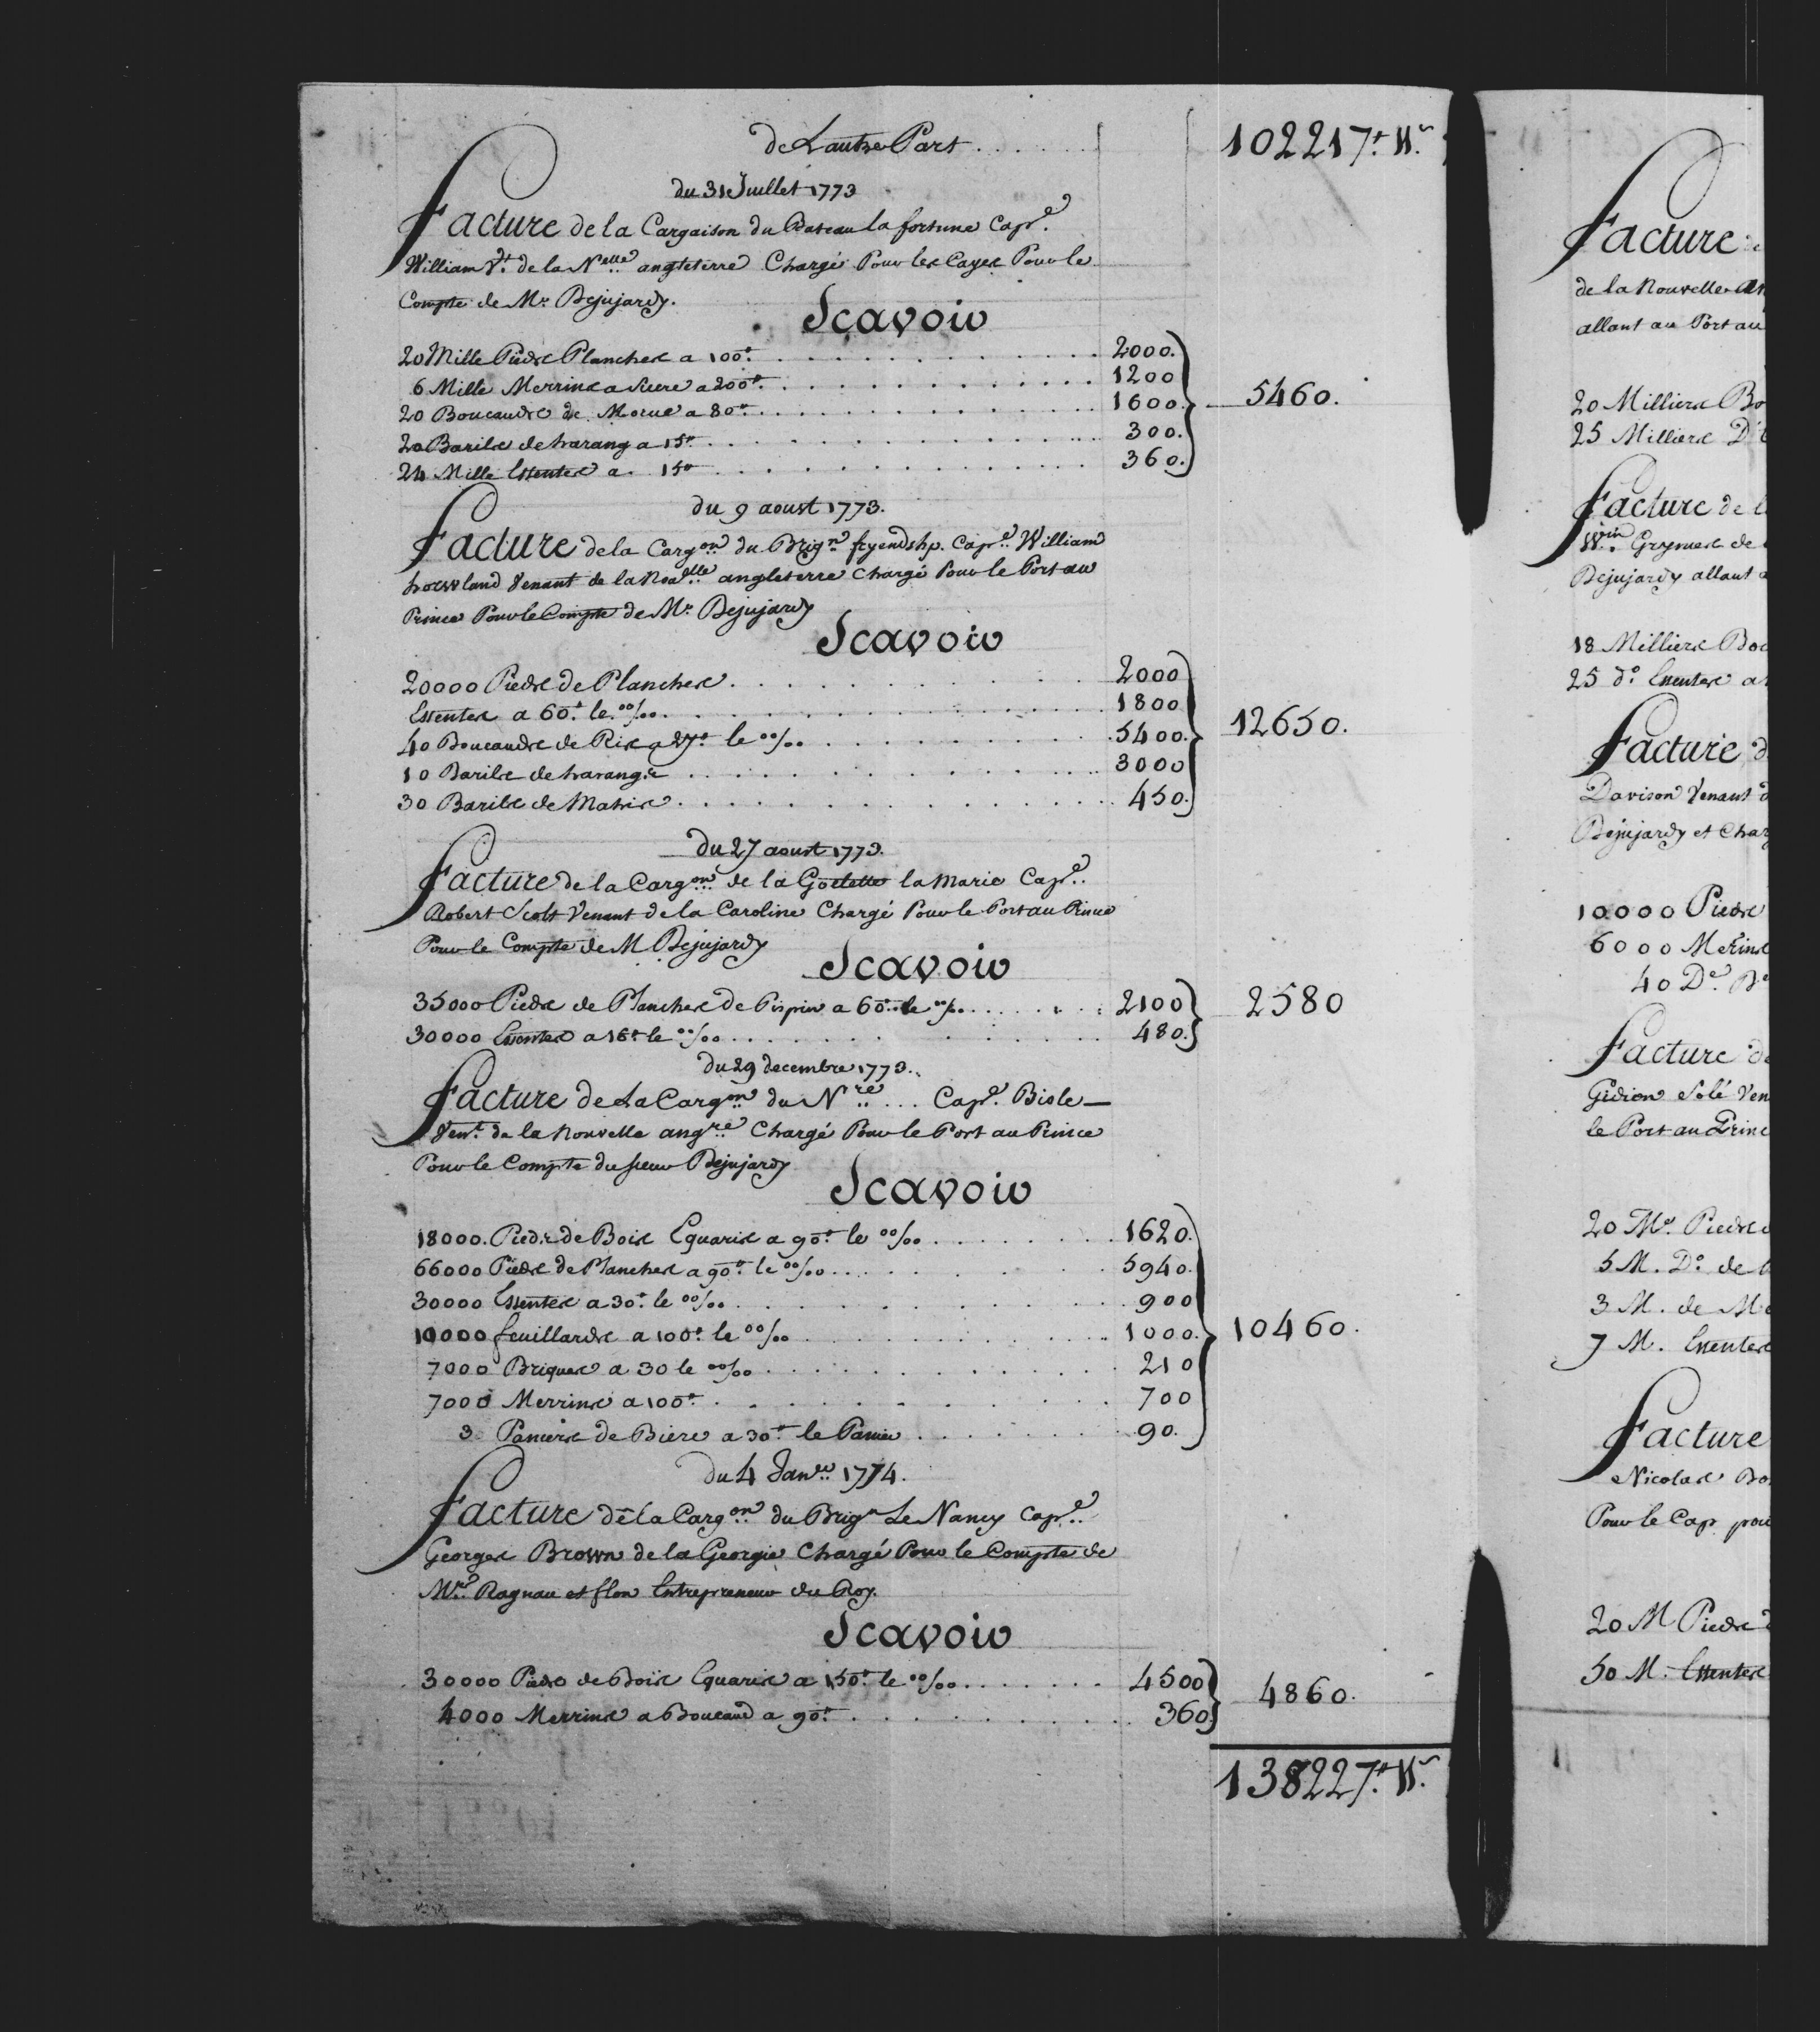 de Lautre Part . . . . . . 102217.# 11.s
du 31 Juillet 1773
Facture de la Cargaison du Bateau la fortune Cap.e
William Vt. de la Nelle angleterre Chargé Pour les Cayes Pour le
Compte de Mr. Bejujardy.
Scavoir
20 Mille Pieds Planches a 100.# . . . . 2000.
6 Mille Merrins a Sucre a 200.# . . . . 1200
20 Boucauds de Morue a 80.# . . . . 1600. 5460.
20 Barils de harang a 15.# . . . . 300.
24 Mille Essentes a 15# . . . . 360.
du 9 aoust 1773.
Facture de la Cargon. du Brign. fryendshp. Cap.e William
howland Venant de la Noavelle angleterre Chargé Pour le Port au
Prince Pour le Compte de Mr. Bejujardy
Scavoir
20000 Pieds de Planches . . . . 2000
Essentes a 60.# le 00/00 . . . . 1800
40 Boucauds de Ris a 27.# le 00/00 . . . . 5400. 12650.
10 Barils de harangs . . . . 3000
30 Barils de Mahis . . . . 450.
du 27 aoust 1773.
Facture de la Cargon. de la Goelette la Marie Cap.e
Robert Scolt Venant de la Caroline Chargé Pour le Port au Prince
Pour le Compte de M Bejujardy
Scavoir
35000 Pieds de Planches de Pispin a 60.# le 00/00 . . . . 2100 2580
30000 Essentes a 16.# le 00/00 . . . . 480.
du 29 decembre 1773.
Facture de La Cargon. du Nre. . . . Cap.e Bisle —
Vent. de la Nouvelle angre. Chargé Pour le Port au Prince
Pour le Compte du sieur Bejujardy
Scavoir
18000. Pieds de Bois Equaris a 90.# le 00/00 . . . . 1620.
66000 Pieds de Planches a 90.# le 00/00 . . . . 5940.
30000 Essentes a 30.# le 00/00 . . . . 900
10000 feuillards a 100.# le 00/00 . . . . 1000. 10460.
7000 Briques a 30 le 00/00 . . . . 210
7000 Merrins a 100.# . . . . 700
3 Paniers de Biere a 30.# le Panier . . . . 90.
du 4 Janer. 1774.
Facture de la Cargon. du Brign Le Nancy Cap.e
Georges Brown de la Georgie Chargé Pour le Compte de
Mrs. Ragnau et flon Entrepreneur du Roy.
Scavoir
30000 Pieds de Bois Equaris a 150.# le 00/00 . . . . 4500 4860.
4000 Merrins a Boucaud a 90.# . . . . 360.
138227.# 11.s
Facture
de la Nouvelle An
allant au Port au
20 Milliers Bo
25 Milliers D'
Facture de l
Win. Grymes de
Bejujardy allant
18 Milliers Bo
25 do. Essentes a
Facture d
Davison Venant d
Bejujardy et Charg
10000 Pieds
6000 Merins
40 Do. B
Facture de
Gidion Solé Ven
le Port au Princ
20 Me. Pieds
5 M. Do. de
3 M. de M
7 M. Essentes
Facture
Nicolas Bo
Pour le Cap pou
20 M Pieds
50 M. Essentes